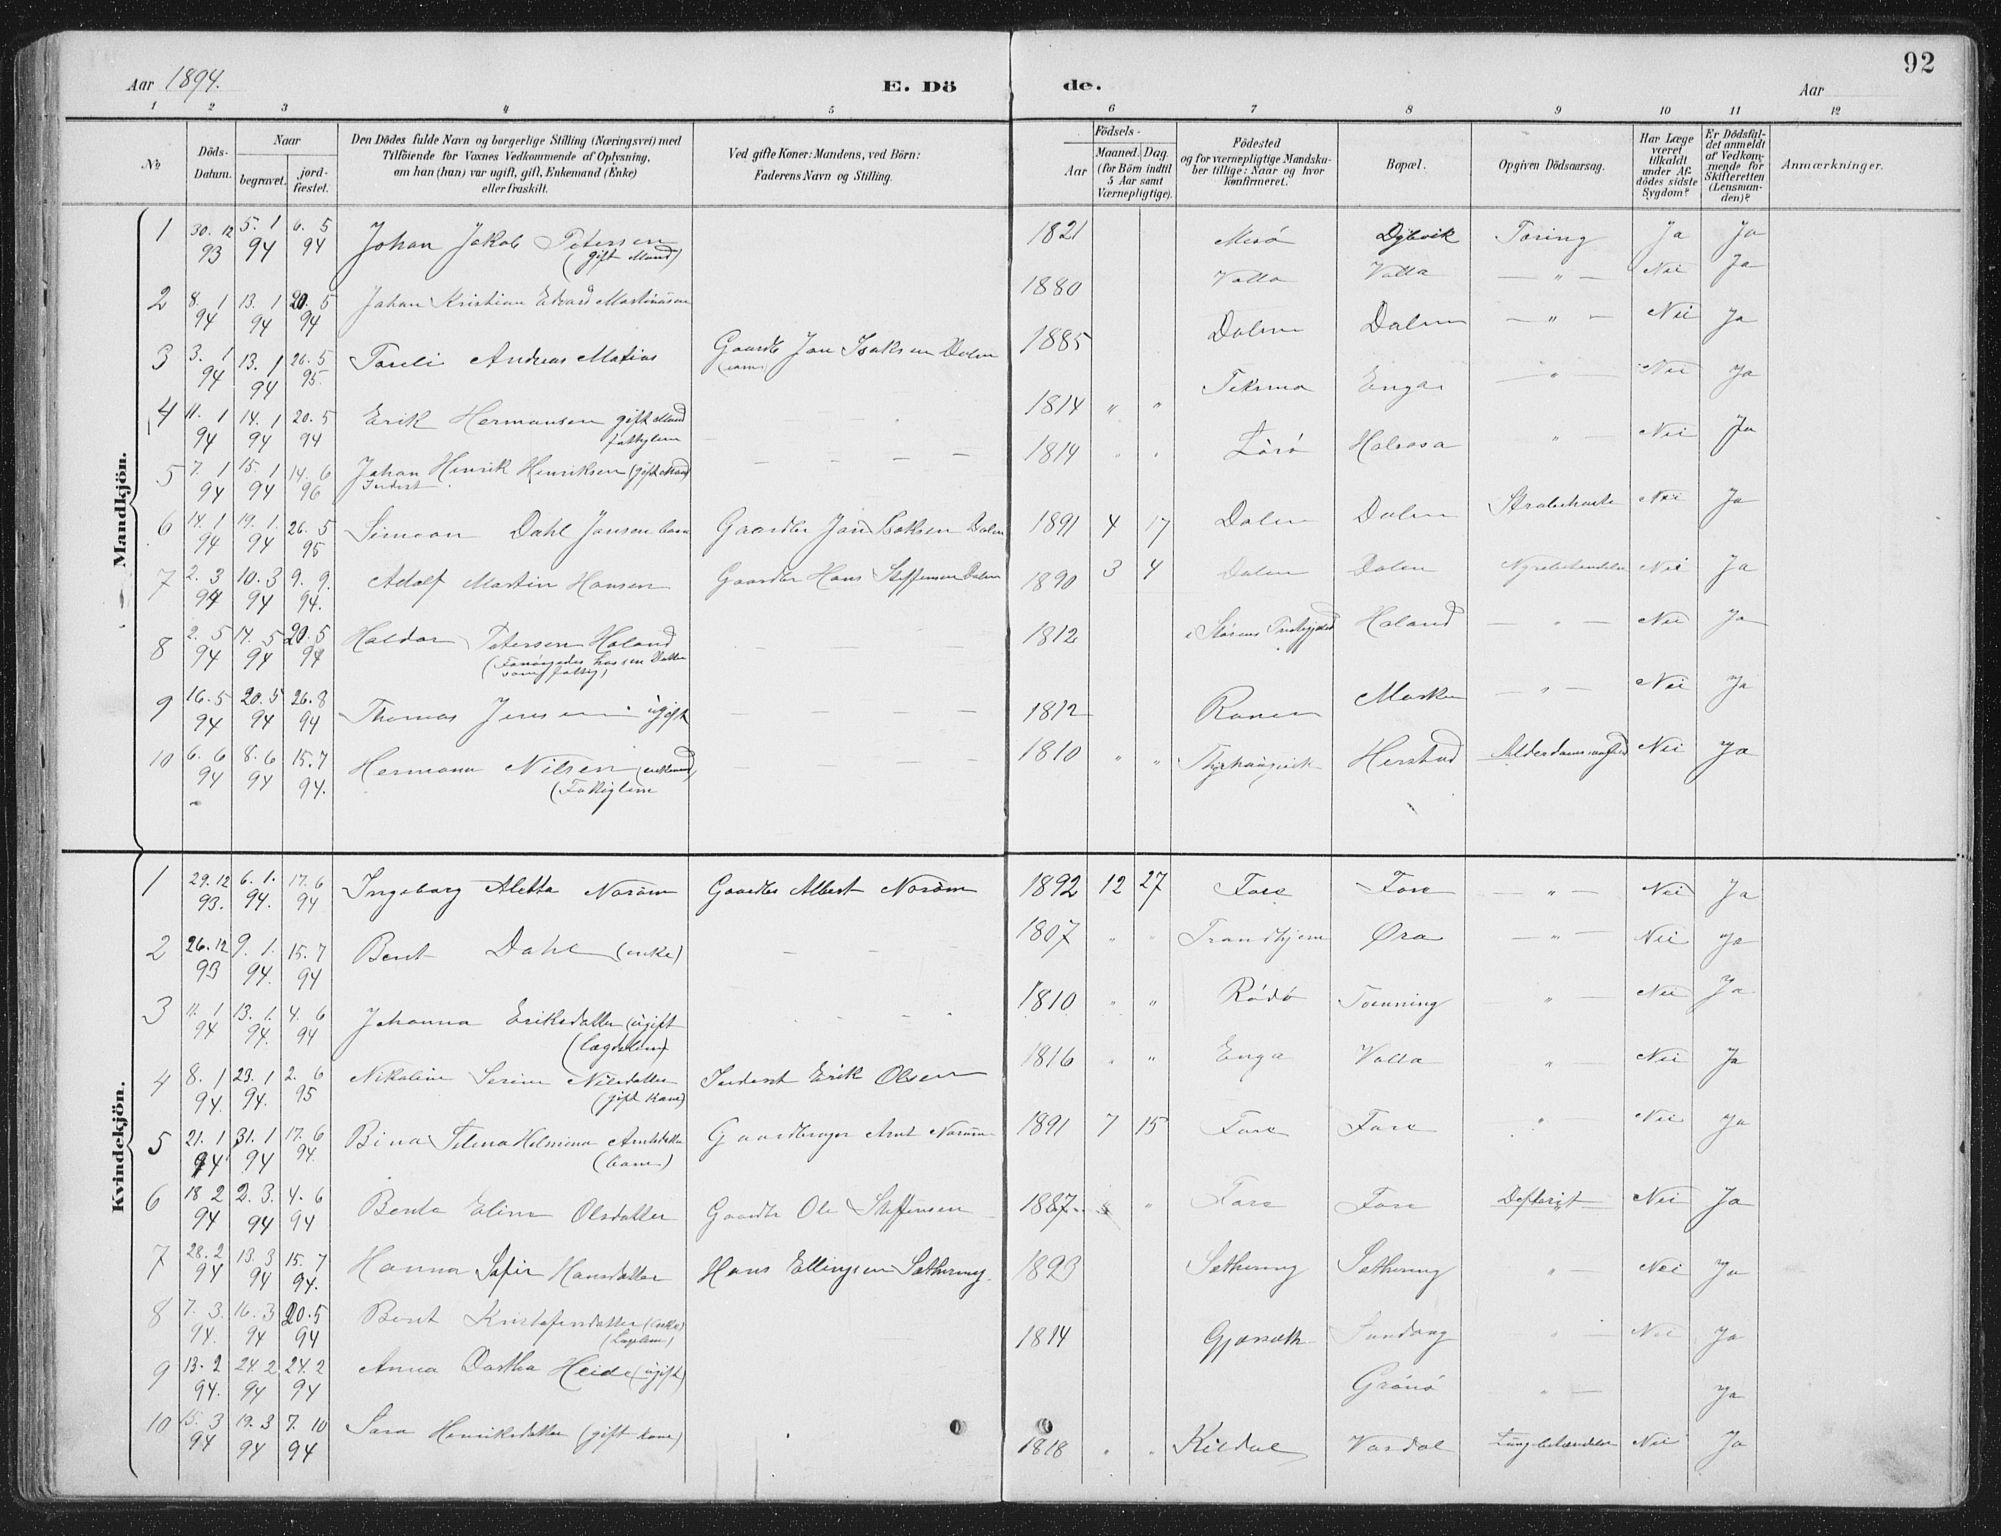 92
Aar 1894. E. Dö de. Aar
1 2 3 4 5 6 7 8 9 10 11 12
No
Döds-Datum.
Naar
begravet.
jord-fæstet.
Den Dödes fulde Navn og borgerlige Stilling (Næringsvei) med
Tilföiende for Voxnes Vedkommende af Oplysning,
om han (hun) var ugift, gift, Enkemand (Enke)
eller fraskilt.
Ved gifte Koner: Mandens, ved Börn:
Faderens Navn og Stilling.
Födsels-
Aar
Maaned. Dag.
(for Börn indtil
5 Aar samt
Værnepligtige).
Födested
og for værnepligtige Mandsku-
ber tillige: Naar og hvor
konfirmeret.
Bopæl.
Opgiven Dödsaarsag.
Har Læge
været
tilkaldt
under Af-
dödes sidste
Sygdom?
Er Dödsfal-
det anmeldt
af Vedkom-
mende for
Skifteretten
(Lensman-
den)?
Anmærkninger.
Mandkjön.
1 30. 12 93 5. 1 94 6. 5 94 Johan Jakob Petersen (gift Mand) 1821 Dybvik Tæring Ja Ja
2 8. 1 94 13. 1 94 20. 5 94 Johan Kristian Edvard Martinusen 1880 Valla Valla — " — Nei Ja
3 3. 1 94 13. 1 94 26. 5 95. Andreas Matias Gaardb Jan Isaksen Dalen 1885 Dalen Dalen — " — Nei Ja
4 11. 1 94 14. 1 94 20. 5 94 Erik Hermansen gift Mand fattiglem 1814 " " Teksmo Enga — " — Nei Ja
5 7. 1 94 15. 1 94 14. 6 96 Johan Henrik Henriksen (gift Mand Inderst 1814 " " Lörö " — Nei Ja
6 14. 1 94 19. 1. 94 26. 5 95 Simon Dahl Jansen barn Gaardbr Jan Isaksen Dalen 1891 4 17 Dalen Dalen Strubehoste Nei Ja
7 2. 3 94 10. 3 94 9. 9. 94. Adolf Martin Hansen Gaardbr Hans Steffensen Dalen 1890 3 4 Dalen Dalen Nyrebetændelse Nei Ja
8 2. 5 94 14. 5 94 20. 5 94 Haldor Petersen Haland (Forsörgedes hos sin Datter som fattig) 1812 i Störens Præstegjeld Haland — " — Nei Ja
9 16. 5 94 20. 5 94 26. 8 94 Thomas Jensen ugift 1812 Ranen — " — Nei Ja
10 6. 6 94 8. 6 94 15. 7 94. Hermann Nilsen (enkemand) (Fattiglem 1810 " " Herstad Alderdomssvaghed Nei Ja
Kvindekjön.
1 29. 12 93. 6. 1. 94. 17. 6 94 Ingeborg Aletta Norum Gaardbr Albert Norum 1892 12 27 Fore Fore — " — Nei Ja
2 26. 12 93 9. 1. 94. 15. 7 94 Bent Dahl (enke) 1807 " " Trondhjem Øra — " — Nei Ja
3 11. 1 94 13. 1. 94. 4. 6 94 Johanna Eriksdatter (ugift (lægdslem) 1810 " " Rödö Torvning — " — Nei Ja
4 8. 1 94. 23. 1 94. 2. 6 95 Nikoline Serine Nilsdatter (gift Kone) Inderst Erik Olsen 1816 " " Enga Valla " — Nei Ja
5 21. 1 94 31. 1 94 17. 6 94. Bina Helmina Arntsdatter (barn) Gaardbruger Arnt Norum 1891 7 15 Fore Fore " Nei Ja
6 18 2 94 2. 3. 94 4. 6 94 Benta Elina Olsdatter Gaardbr Ole Steffensen 1887 " Fore Fore Defterit Nei Ja
7 28. 2 94 13. 3 94 15. 7 94. Hanna Sofie Hansdatter Hans Ellingsen Sætherøy. 1893 " — Nei Ja
8 7. 3. 94. 16. 3 94 20. 5 94 Bent Kristofersdatter (enke) 1814 Sundøy " Nei Ja
9 13. 2 94. 24. 2 94 24. 2 94 Anna Dorthea Heide (ugift) Grönö " — Ja
10 15. 3 94 19. 3 94 7. 10 94 Sara Henriksdatter (gift Kone) 1818 " " Kildal Vasdal Lungebetændelse Nei Ja